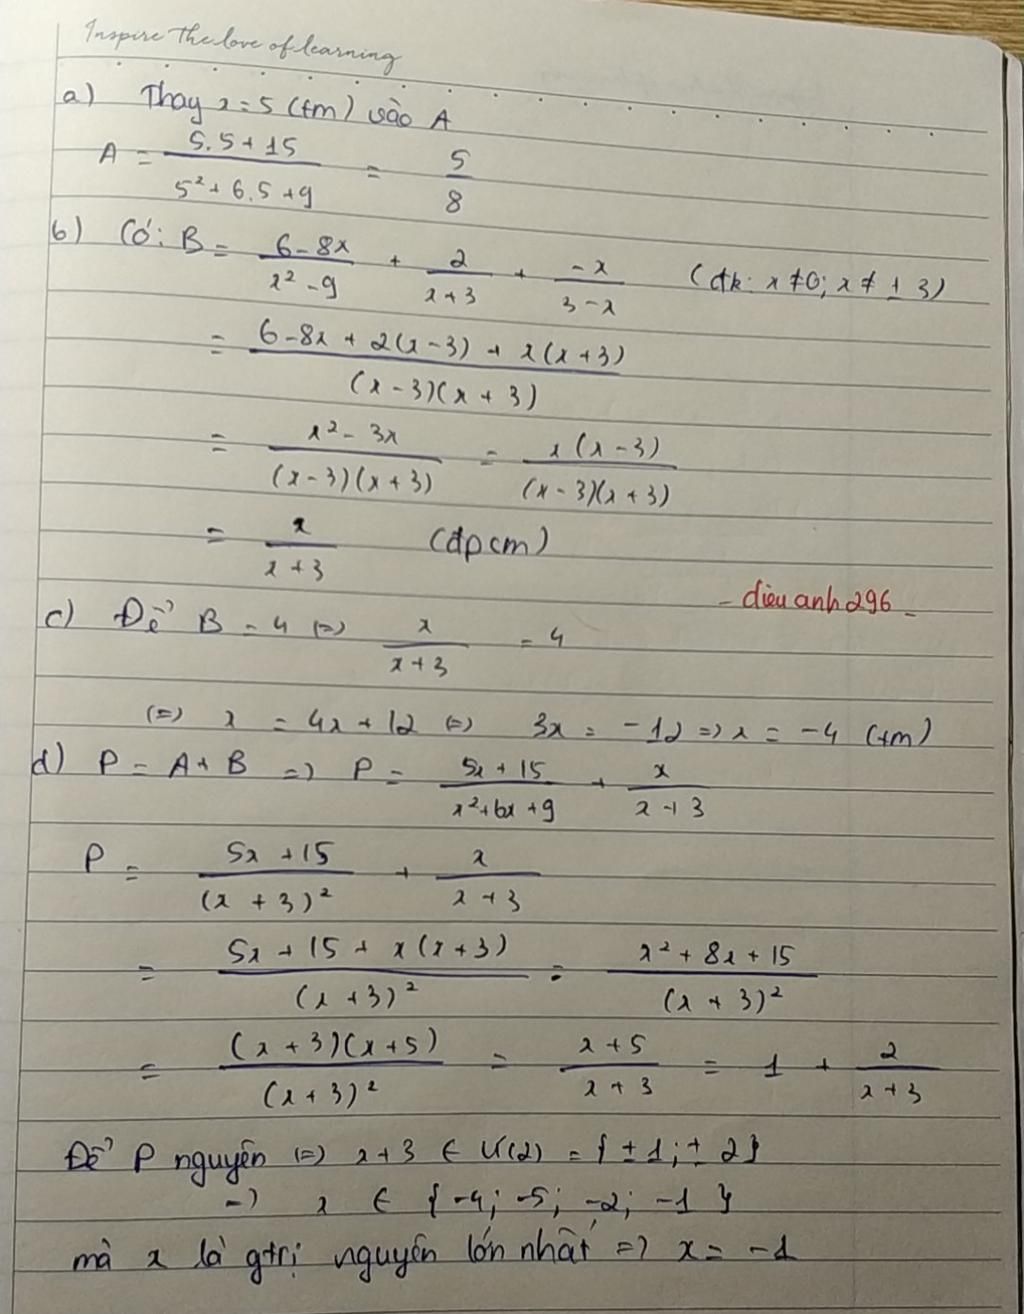 Inspire the love of learning
a) Thay x = 5 (tm) vào A
A = (5.5 + 15)/(5² + 6.5 + 9) = 5/8
b) Có: B = (6 - 8x)/(x² - 9) + 2/(x + 3) + (-x)/(3 - x) (đk: x ≠ 0; x ≠ ± 3)
= (6 - 8x + 2(x - 3) + x(x + 3))/((x - 3)(x + 3))
= (x² - 3x)/((x - 3)(x + 3)) = (x(x - 3))/((x - 3)(x + 3))
= x/(x + 3) (đpcm)
- dieu anh 296 -
c) Để B = 4 (=) x/(x + 3) = 4
(=) x = 4x + 12 (=) 3x = -12 => x = -4 (tm)
d) P = A + B => P = (5x + 15)/(x² + 6x + 9) + x/(x + 3)
P = (5x + 15)/(x + 3)² + x/(x + 3)
= (5x + 15 + x(x + 3))/(x + 3)² = (x² + 8x + 15)/(x + 3)²
= ((x + 3)(x + 5))/(x + 3)² = (x + 5)/(x + 3) = 1 + 2/(x + 3)
Để P nguyên (=) x + 3 ∈ Ư(2) = {± 1; ± 2}
=> x ∈ {-4; -5; -2; -1}
mà x là gtrị nguyên lớn nhất => x = -1